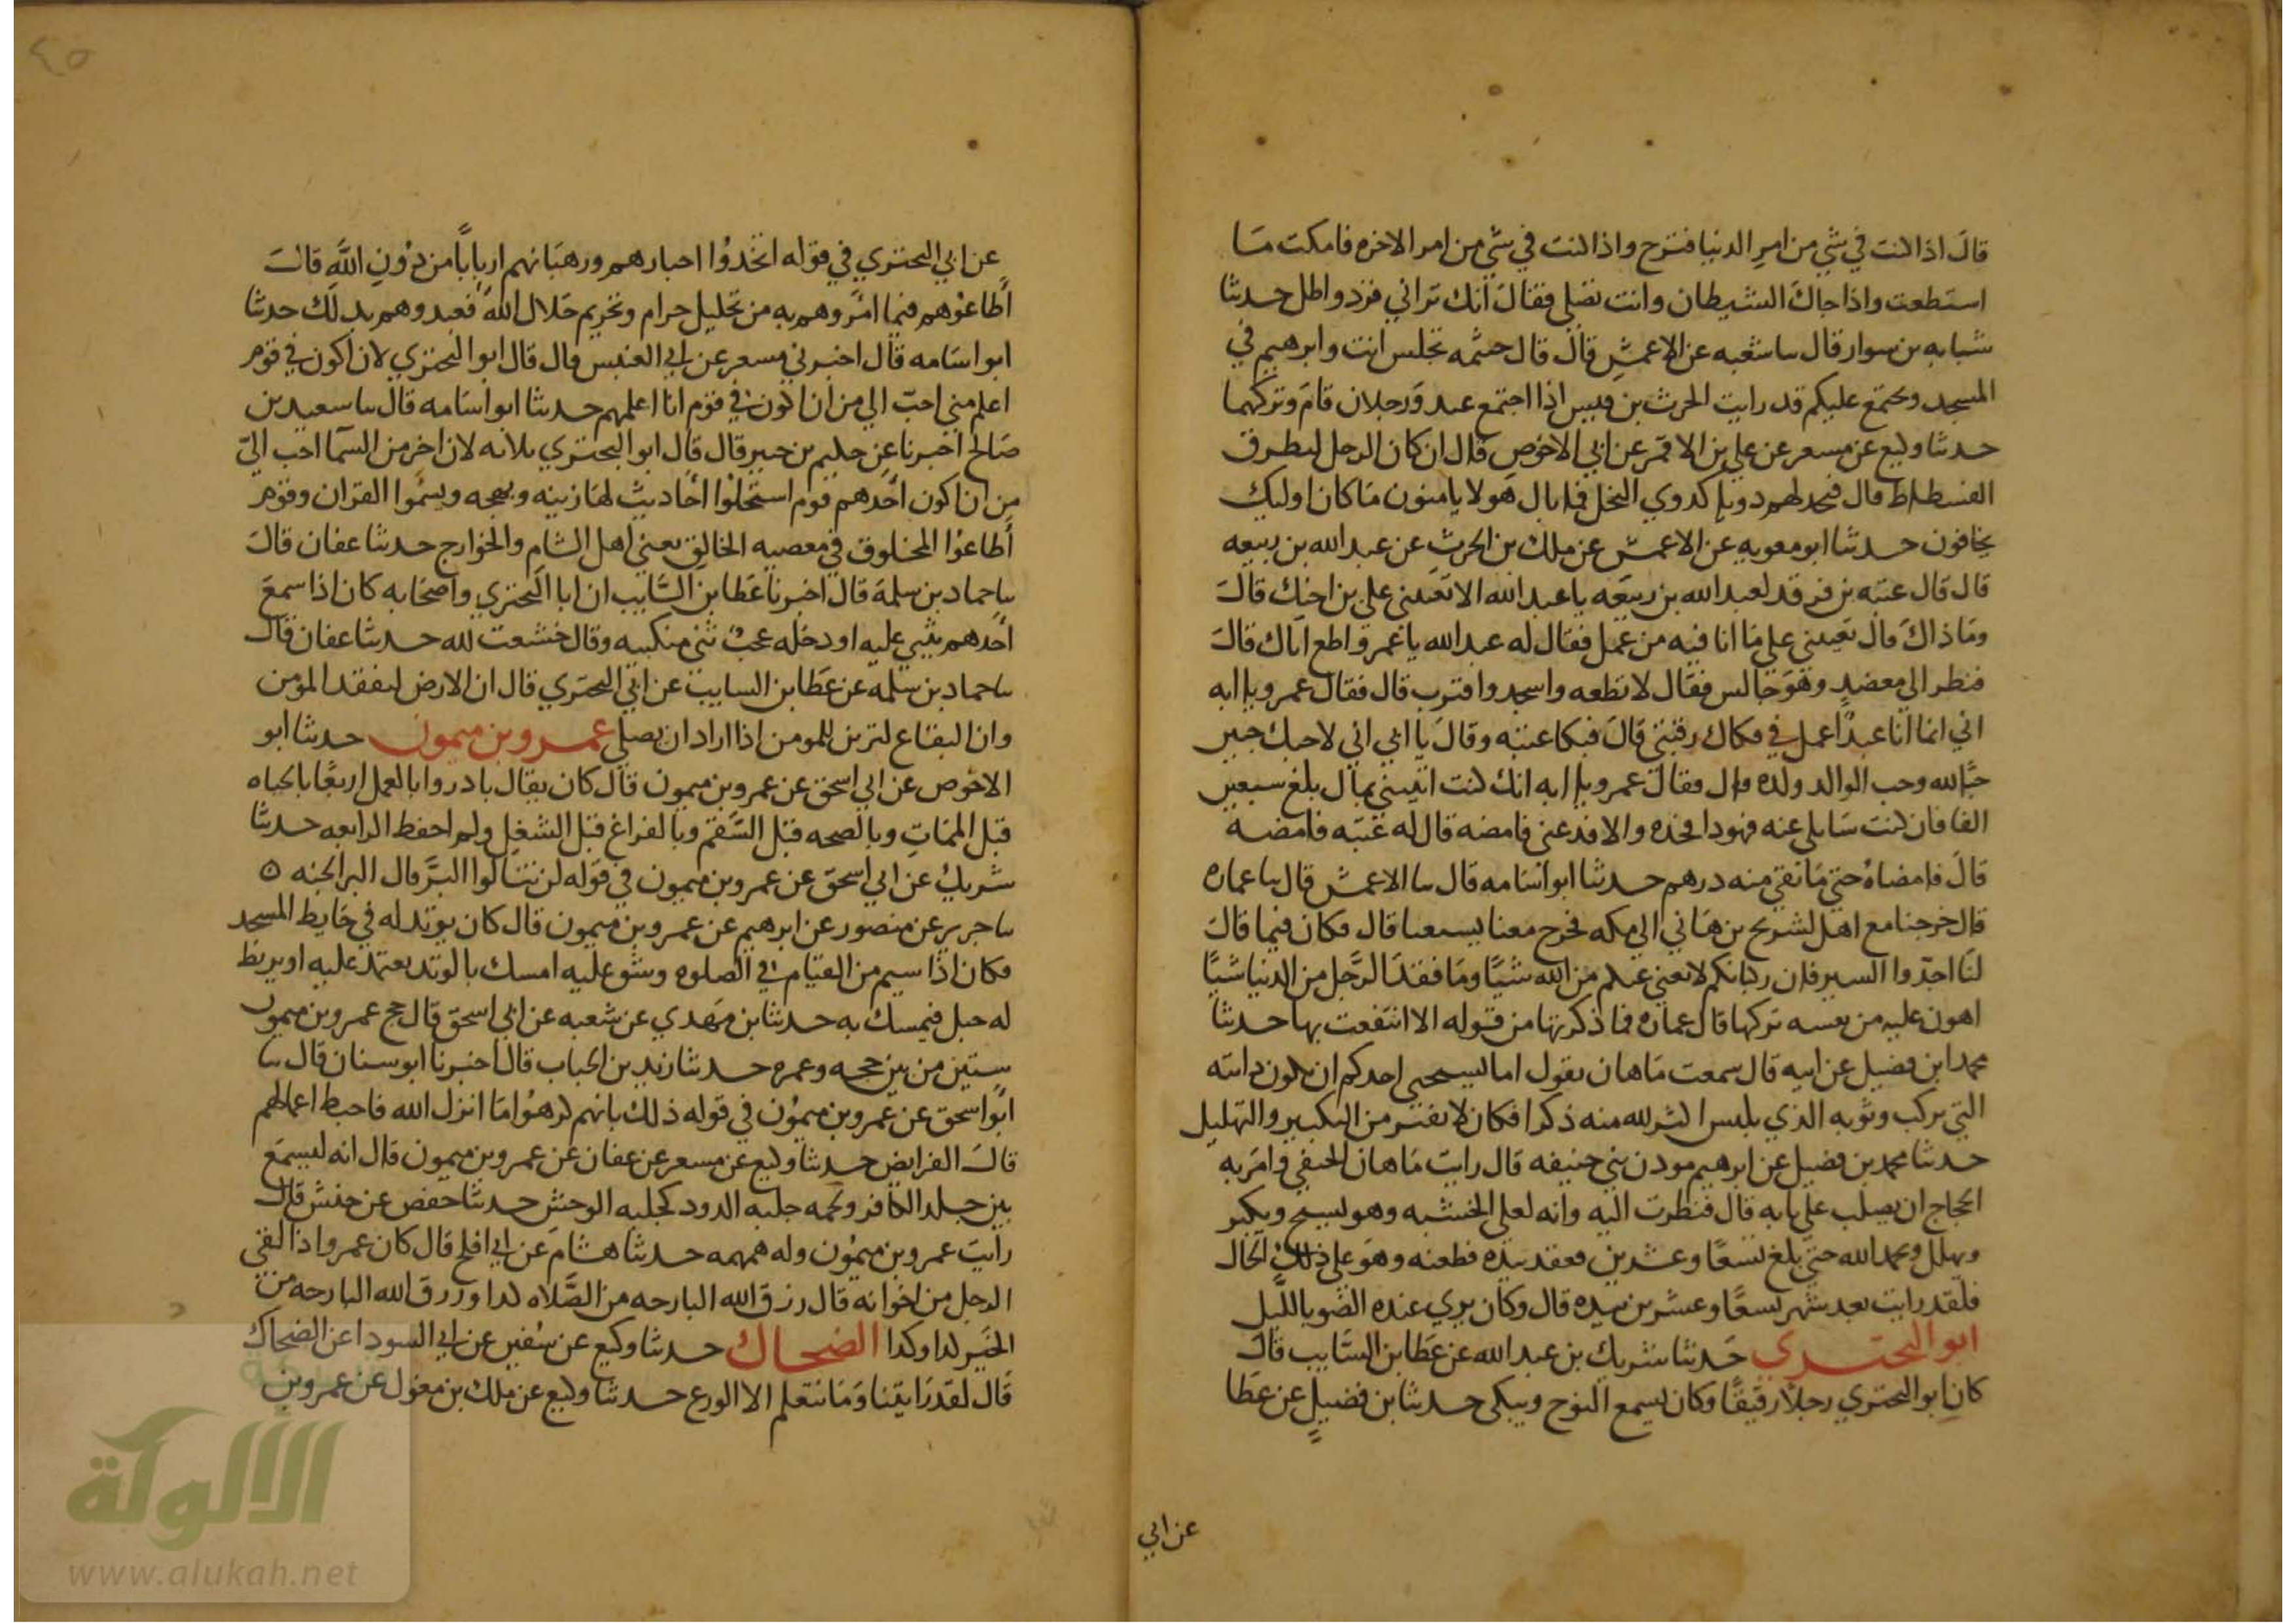 قال اذا كنت في شي من امر الدنيا فتزح واذا كنت في شي من امر الاخره فامكث ما
استطعت واذا جاك الشيطان وانت تصلي فقال انك ترائي فزد واطل حدثنا
شبابه بن سوار قال سا شعبه عن الاعمش قال قال خيثمه تجلس انت وابرهيم في
المسجد ويجتمع عليكم قد رايت الحرث بن قيس اذا اجتمع عنده رجلان قام وتركهما
حدثنا وكيع عن مسعر عن علي بن الاقمر عن ابي الاحوص قال ان كان الرجل ليطرق
الفسطاط قال فيجد لهم دويا كدوي النخل فما بال هولا يامنون ما كان اوليك
يخافون حدثنا ابو معويه عن الاعمش عن ملك بن الحرث عن عبد الله بن ربيعه
قال قال عتبه بن فرقد لعبد الله بن ربيعه يا عبد الله الا تعينني علي بن اخيك قال
وما ذاك قال تعينني علي ما انا فيه من عمل فقال له عبد الله يا عمرو اطع اباك قال
فنظر الي معضد وهو جالس فقال لا تطعه واسجد واقترب قال فقال عمرو يا ابه
اني انما انا عبد اعمل في فكاك رقبتي قال فبكا عتبه وقال يا ابني اني لاحبك حبين
حبا لله وحب الوالد ولده قال فقال عمرو يا ابه انك كنت اتيتني بمال بلغ سبعين
الفا فان كنت سايلي عنه فهوذا فخذه والا فدعني فامضه قال له عتبه فامضه
قال فامضاه حتي ما بقي منه درهم حدثنا ابو اسامه قال سا الاعمش قال سا عماره
قال خرجنا مع اهل لشريح بن هاني الي مكه فخرج معنا يشيعنا قال فكان فيما قال
لنا اجدوا السير فان ركبانكم لا تغني عنكم من الله شيًا وما فقد الرجل من الدنيا شيًا
اهون عليه من نفسه تركها قال عماره فما ذكرتها من قوله الا انتفعت بها حدثنا
محمد ابن فضيل عن ابيه قال سمعت ماهان يقول اما يستحيي احدكم ان تكون دابته
التي يركب وثوبه الذي يلبس اكثر لله منه ذكرا فكان لا يفتر من التكبير والتهليل
حدثنا محمد بن فضيل عن ابرهيم موذن بني حنيفه قال رايت ماهان الحنفي وامر به
الحجاج ان يصلب علي بابه قال فنظرت اليه وانه لعلي الخشبه وهو يسبح ويكبر
ويهلل ويحمد الله حتي بلغ تسعًا وعشرين فعقد بيده فطعنه وهو علي ذلك الحال
فلقد رايت بعد شهر تسعًا وعشرين بيده قال وكان يري عنده الضو بالليل
ابو البحتـري حدثنا شريك بن عبد الله عن عطا بن السايب قال
كان ابو البحتري رجلًا رقيقًا وكان يسمع النوح ويبكي حدثنا بن فضيل عن عطا
عن ابي
٤٥
عن ابي البحتري في قوله اتخذوا احبارهم ورهبانهم اربابًا من دون الله قال
اطاعوهم فيما امروهم به من تحليل حرام وتحريم حلال الله فعبدوهم بذلك حدثنا
ابو اسامه قال اخبرني مسعر عن ابي العنبس قال قال ابو البحتري لان اكون في قوم
اعلم مني احبّ الي من ان اكون في قوم انا اعلمهم حدثنا ابو اسامه قال سا سعيد بن
صالح اخبرنا عن حكيم بن جبير قال قال ابو البحتري ثلاثه لان اخر من السما احب اليّ
من ان اكون احدهم قوم استحلوا احاديث لها زينه وبهجه وسيموا القران وقوم
اطاعوا المخلوق في معصيه الخالق يعني اهل الشام والخوارج حدثنا عفان قال
سا حماد بن سلمة قال اخبرنا عطا بن السايب ان ابا البحتري واصحابه كان اذا سمع
احدهم يثني عليه او دخله عجب ثني منكبيه وقال خشعت لله حدثنا عفان قال
سا حماد بن سلمه عن عطا بن السايب عن ابي البحتري قال ان الارض لتفقد المومن
وان البقاع لتزين للمومن اذا اراد ان يصلي عمـرو بن ميمون حدثنا ابو
الاحوص عن ابي اسحق عن عمرو بن ميمون قال كان يقال بادروا بالعمل اربعًا بالحياه
قبل الممات وبالصحه قبل السقم وبالفراغ قبل الشغل ولم احفظ الرابعه حدثنا
شريك عن ابي اسحق عن عمرو بن ميمون في قوله لن تنالوا البرّ قال البر الجنه ه
سا جرير عن منصور عن ابرهيم عن عمرو بن ميمون قال كان يوتد له في حايط المسجد
فكان اذا سيم من القيام في الصلوه وشق عليه امسك بالوتد يعتمد عليه او يربط
له حبل فيمسك به حدثنا بن مهدي عن شعبه عن ابي اسحق قال حج عمرو بن ميمون
ستين من بين حجه وعمره حدثنا زيد بن الحباب قال اخبرنا ابو سنان قال سا
ابو اسحق عن عمرو بن ميمون في قوله ذلك بانهم كرهوا ما انزل الله فاحبط اعمالهم
قال الفرايض حدثنا وكيع عن مسعر عن عفان عن عمرو بن ميمون قال انه ليسمع
بين جلد الكافر ولحمه جلبه الدود كجلبه الوحش حدثنا حفص عن حنش قال
رايت عمرو بن ميمون وله همهمه حدثنا هشام عن ابي افلح قال كان عمرو اذا لقي
الرجل من اخوانه قال رزق الله البارحه من الصلاه كذا ورزق الله البارحه من
الخير كذا وكدا الضحـاك حدثنا وكيع عن سفين عن ابي السودا عن الضحاك
قال لقد رايتنا وما نتعلم الا الورع حدثنا وكيع عن ملك بن مغول عن عمرو بن
الألوكة
www.alukah.net